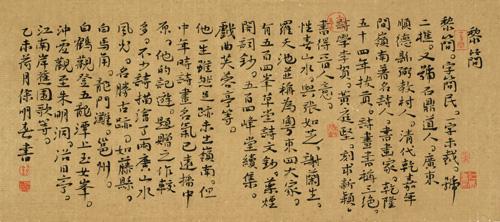 黎简
黎简。字简民、字未裁。號
二樵。又號石鼎道人。廣東
順德弼教村人。清代乾嘉年
間嶺南著名詩人、書畫家。乾隆
五十四年拔貢。詩畫書稱三绝
詩學李賀、黄庭堅。刻求新颖
書得晋人意。
性喜山水。與張如芝、謝蘭生、
羅天池並稱為粵東四大家。
有五百四峯草堂詩文鈔、葯煙
閣詞鈔、五百四峰堂續集。
戲曲芙蓉亭等。
他生雖然足跡未出嶺南。但
中年時詩畫名氣已遠播中
原。他的記遊、題贈之作較
多。不少詩描繪了兩廣山水
風光。名勝古跡。如藤縣。
白馬角。龍門灘。邕州。
白鶴觀登五龍潭上玉女峯。
沖虚觀至朱明洞。浴日亭。
江南岸圍歌等。
乙未荷月保明書